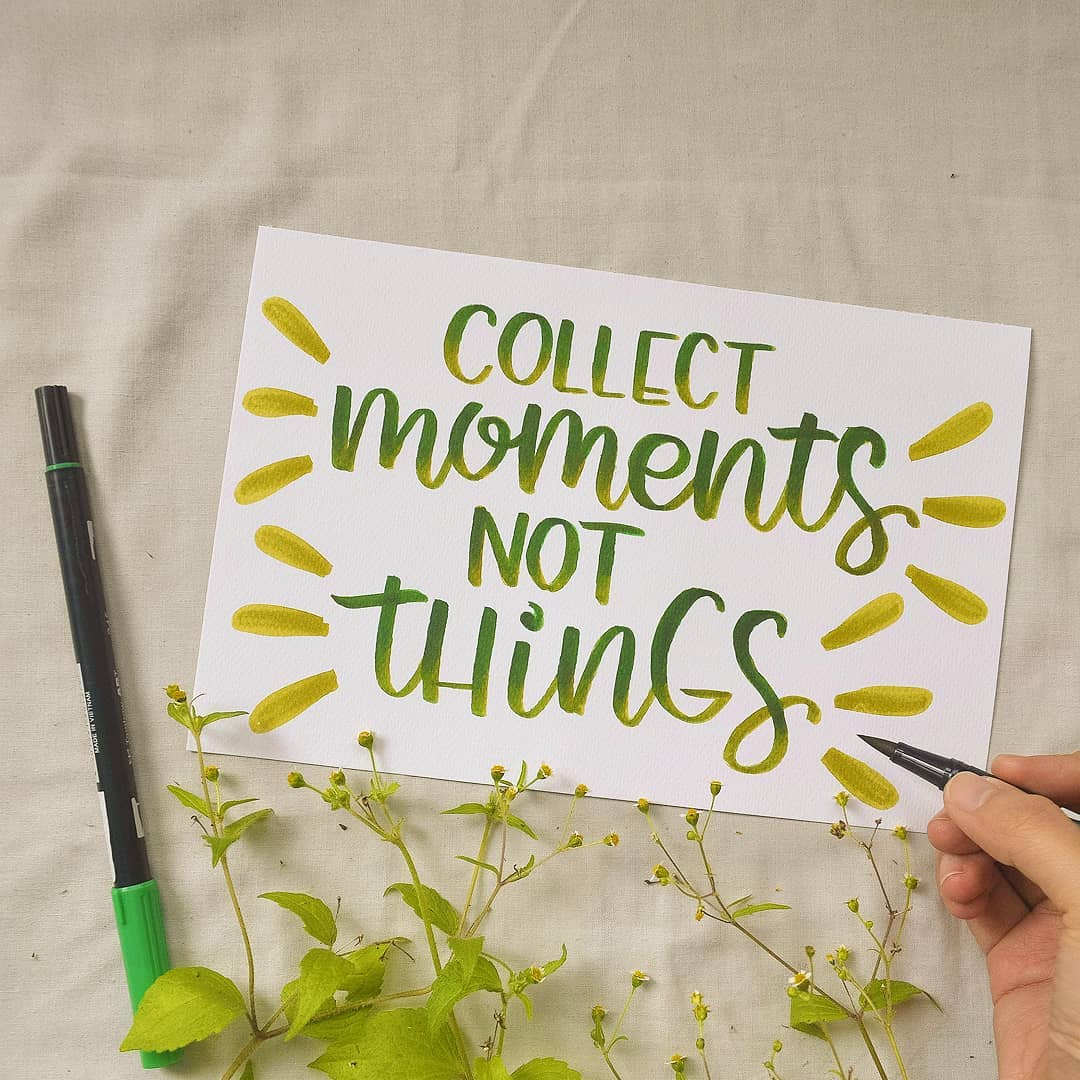 COLLECT
moments
NOT
tHinGs
MADE IN VIETNAM